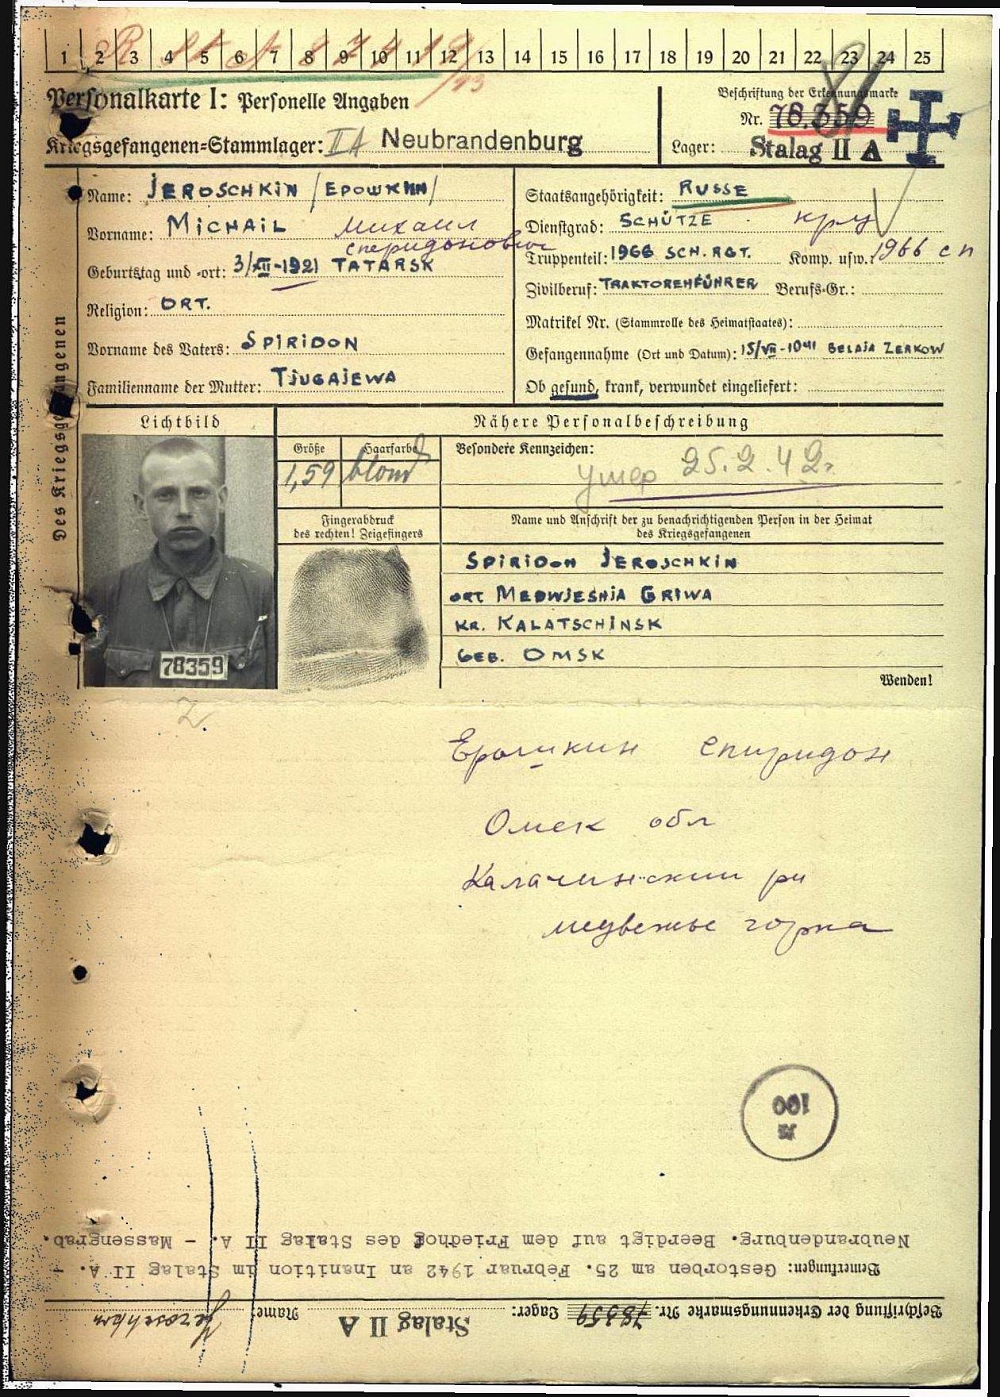 1 2 3 4 5 6 7 8 9 10 11 12 13 14 15 16 17 18 19 20 21 22 23 24 25
Personalkarte I: Personelle Angaben
Kriegsgefangenen=Stammlager: II A Neubrandenburg
Beschriftung der Erkennungsmarke
Nr. 78359
Lager: Stalag II A
Des Kriegsgefangenen
Name: JEROSCHKIN /ЕРОШКИН/
Vorname: MICHAIL Михаил
Спиридонович
Geburtstag und =ort: 3/XII-1921 TATARSK
Religion: ORT.
Vorname des Vaters: SPIRIDON
Familienname der Mutter: TJUGAJEWA
Staatsangehörigkeit: RUSSE
Dienstgrad: SCHÜTZE кр
Truppenteil: 1966 SCH. RGT. Komp. usw.: 1966 сп
Zivilberuf: TRAKTORENFÜHRER Berufs=Gr.:
Matrikel Nr. (Stammrolle des Heimatstaates):
Gefangennahme (Ort und Datum): 15/VII-1941 BELAJA ZERKOW
Ob gesund, krank, verwundet eingeliefert:
Lichtbild
Nähere Personalbeschreibung
Größe Haarfarbe
1,59 blond
Besondere Kennzeichen:
умер 25.2.42г.
Fingerabdruck
des rechten! Zeigefingers
Name und Anschrift der zu benachrichtigenden Person in der Heimat
des Kriegsgefangenen
SPIRIDON JEROSCHKIN
ORT MEDWJESHJA GRIWA
KR. KALATSCHINSK
GEB. OMSK
78359
Wenden!
Ерошкин Спиридон
Омск обл
Калачинский рн
медвежье горка
Beschriftung der Erkennungsmarke Nr. 78359 Lager: Stalag II A Name: Jeroschkin
Bemerkungen: Gestorben am 25. Februar 1942 an Inanition im Stalag II A. -
Neubrandenburg. Beerdigt auf dem Friedhof des Stalag II A. - Massengrab.
100